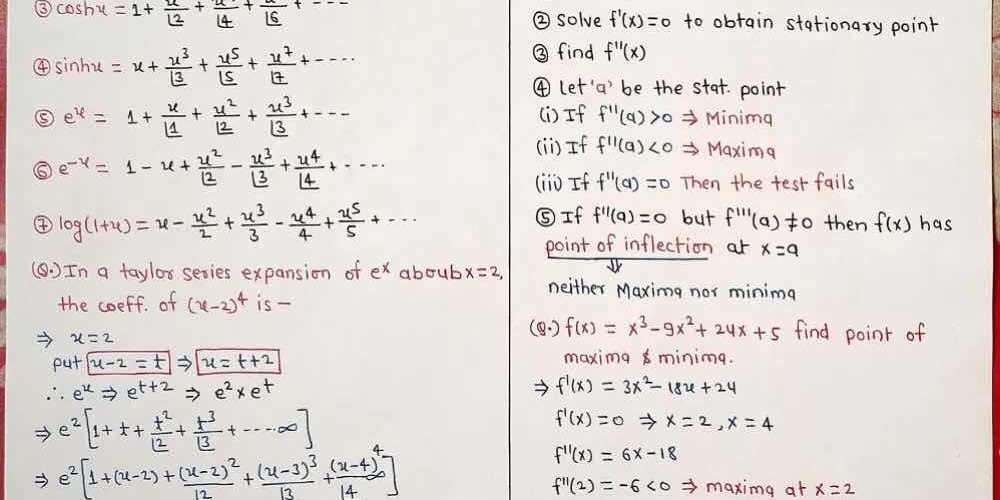 ③ coshx = 1 + x/⌊2 + x/⌊4 + x/⌊6 + - - -
④ sinhx = x + x³/⌊3 + x⁵/⌊5 + x⁷/⌊7 + - - - -
⑤ eˣ = 1 + x/⌊1 + x²/⌊2 + x³/⌊3 + - - -
⑥ e⁻ˣ = 1 - x + x²/⌊2 - x³/⌊3 + x⁴/⌊4 + - - - -
⑦ log(1+x) = x - x²/2 + x³/3 - x⁴/4 + x⁵/5 + - - -
(Q.) In a taylor series expansion of eˣ about x=2,
the coeff. of (x-2)⁴ is —
⇒ x = 2
put x-2 = t ⇒ x = t+2
∴ eˣ ⇒ eᵗ⁺² ⇒ e² × eᵗ
⇒ e² [1 + t + t²/⌊2 + t³/⌊3 + - - - - ∞]
⇒ e² [1 + (x-2) + (x-2)²/⌊2 + (x-3)³/⌊3 + (x-4)⁴/⌊4 ∞]
② Solve f'(x)=0 to obtain stationary point
③ find f''(x)
④ Let 'a' be the stat. point
(i) If f''(a) >0 ⇒ Minima
(ii) If f''(a) <0 ⇒ Maxima
(iii) If f''(a) =0 Then the test fails
⑤ If f''(a)=0 but f'''(a) ≠0 then f(x) has
point of inflection at x=a
⇓
neither Maxima nor minima
(Q.) f(x) = x³-9x²+24x+5 find point of
maxima & minima.
⇒ f'(x) = 3x²-18x+24
f'(x) =0 ⇒ x=2, x=4
f''(x) = 6x-18
f''(2) = -6<0 ⇒ maxima at x=2